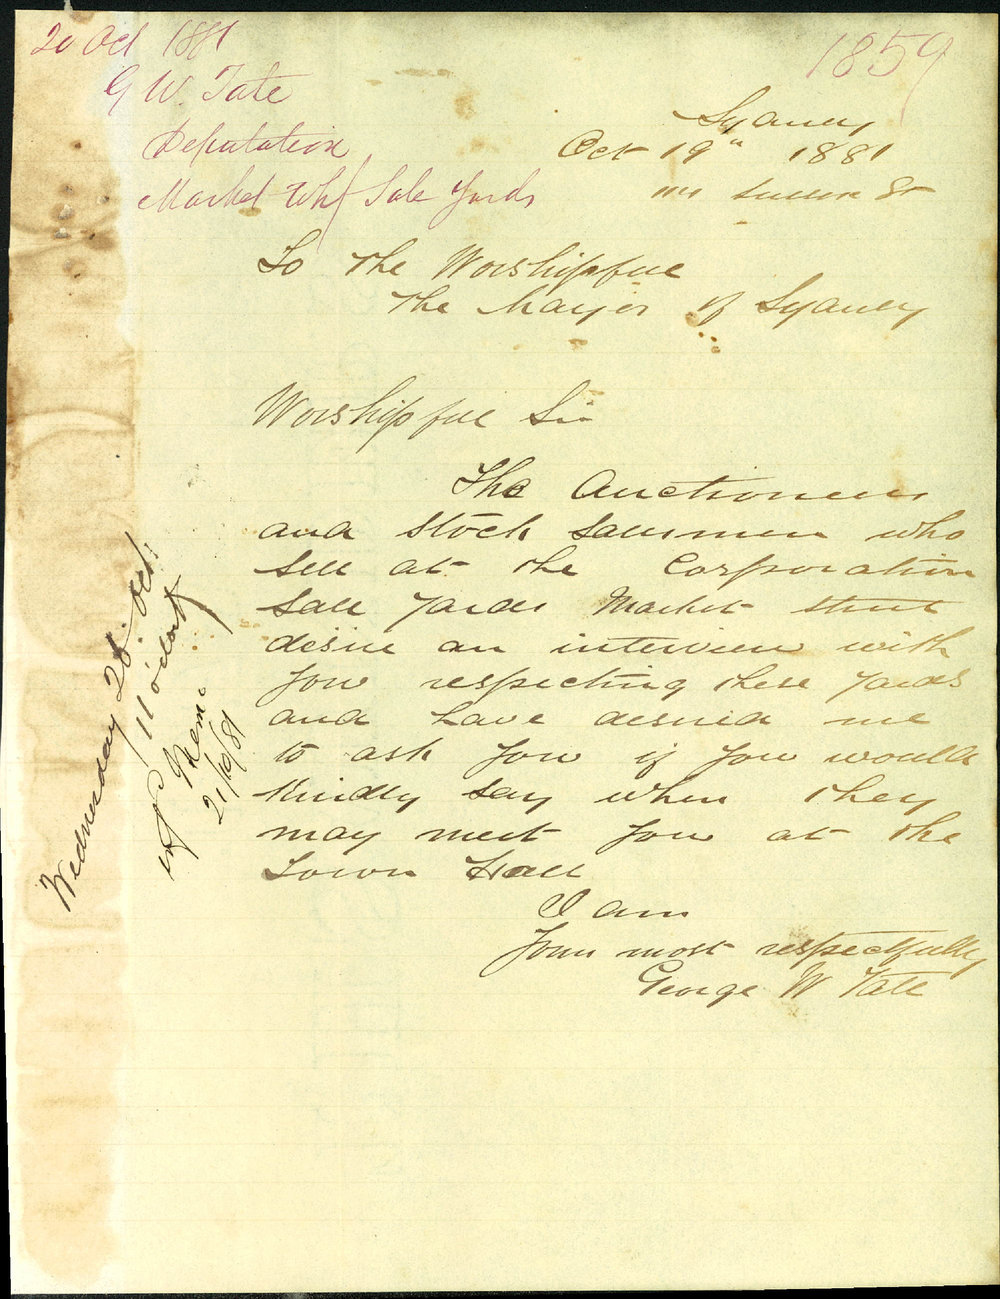 20 Oct 1881
G W Tate
Deputation
Market Whf Sale Yards
1859
Sydney
Oct 19th 1881
Sussex St
To the Worshipful
The Mayor of Sydney
Worshipful Sir
The Auctioneers
and Stock Salesmen who
sell at the Corporation
Sale Yards Market Street
desire an interview with
you respecting these yards
and have desired me
to ask you if you would
kindly say when they
may meet you at the
Town Hall
I am
Your most respectfully
George W Tate
Wednesday 26 Oct
11 o'clock
21/10/81